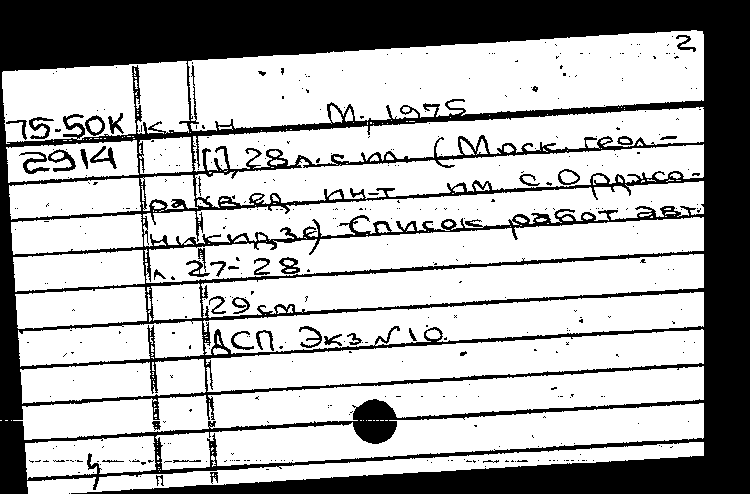 2
75-50К К. Т. Н М., 1975
2914 [1], 28 л. с ил. (Моск. геол.-
развед. ин-т им. С. Орджо-
никидзе) Список работ авт.
л. 27-28.
29 см.
ДСП. Экз. №10